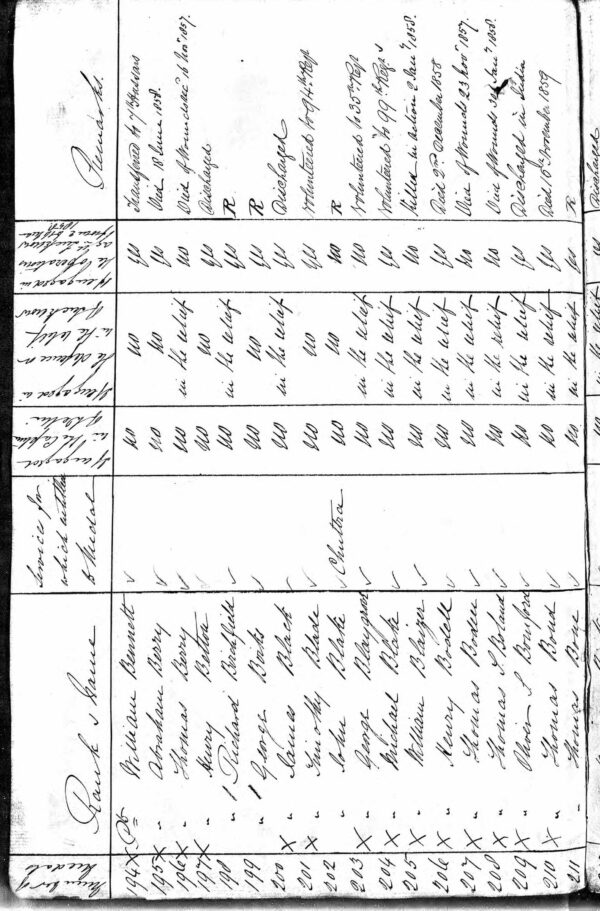 Number of Medals | Rank & Name | Service for which entitled to Medal | If engaged in the Capture of Delhi | If engaged in the defence or in the relief of Lucknow | If engaged in the Operations against Lucknow from 2 to 1858 | Remarks.
194 X Pte William Bennett ✓ no no yes Transferred to 7th Hussars
195 X " Abraham Berry ✓ no no yes Died 18 June 1858.
196 X " Thomas Berry ✓ no in the relief no Died of Wounds 16 Novr 1857.
197 X " Henry Betton ✓ no no yes Discharged
198 " 1 Richard ✓ no in the relief yes R
199 " 1 George ✓ no no yes R
200 X " James Black ✓ no in the relief yes Discharged
201 X " Timothy Blade ✓ no no yes Volunteered to 94th Regt
202 " John Blake ✓ Chuttra no no no R
203 X " George ✓ no in the relief no Volunteered to 35th Regt
204 X " Michael Blake ✓ no in the relief yes Volunteered to 99th Regt
205 X " William ✓ no in the relief no Killed in action 2 Jany 1858.
206 X " Henry Bodell ✓ no in the relief yes Died 2nd December 1858
207 X " Thomas Boden ✓ no in the relief no Died of Wounds 23 Novr 1857
208 X " Thomas S Boland ✓ no in the relief no Died of Wounds Jany 1858.
209 X " Oliver S ✓ no in the relief yes Discharged in India
210 X " Thomas Bond ✓ no in the relief yes Died November 1859
211 " Thomas ✓ no in the relief yes R